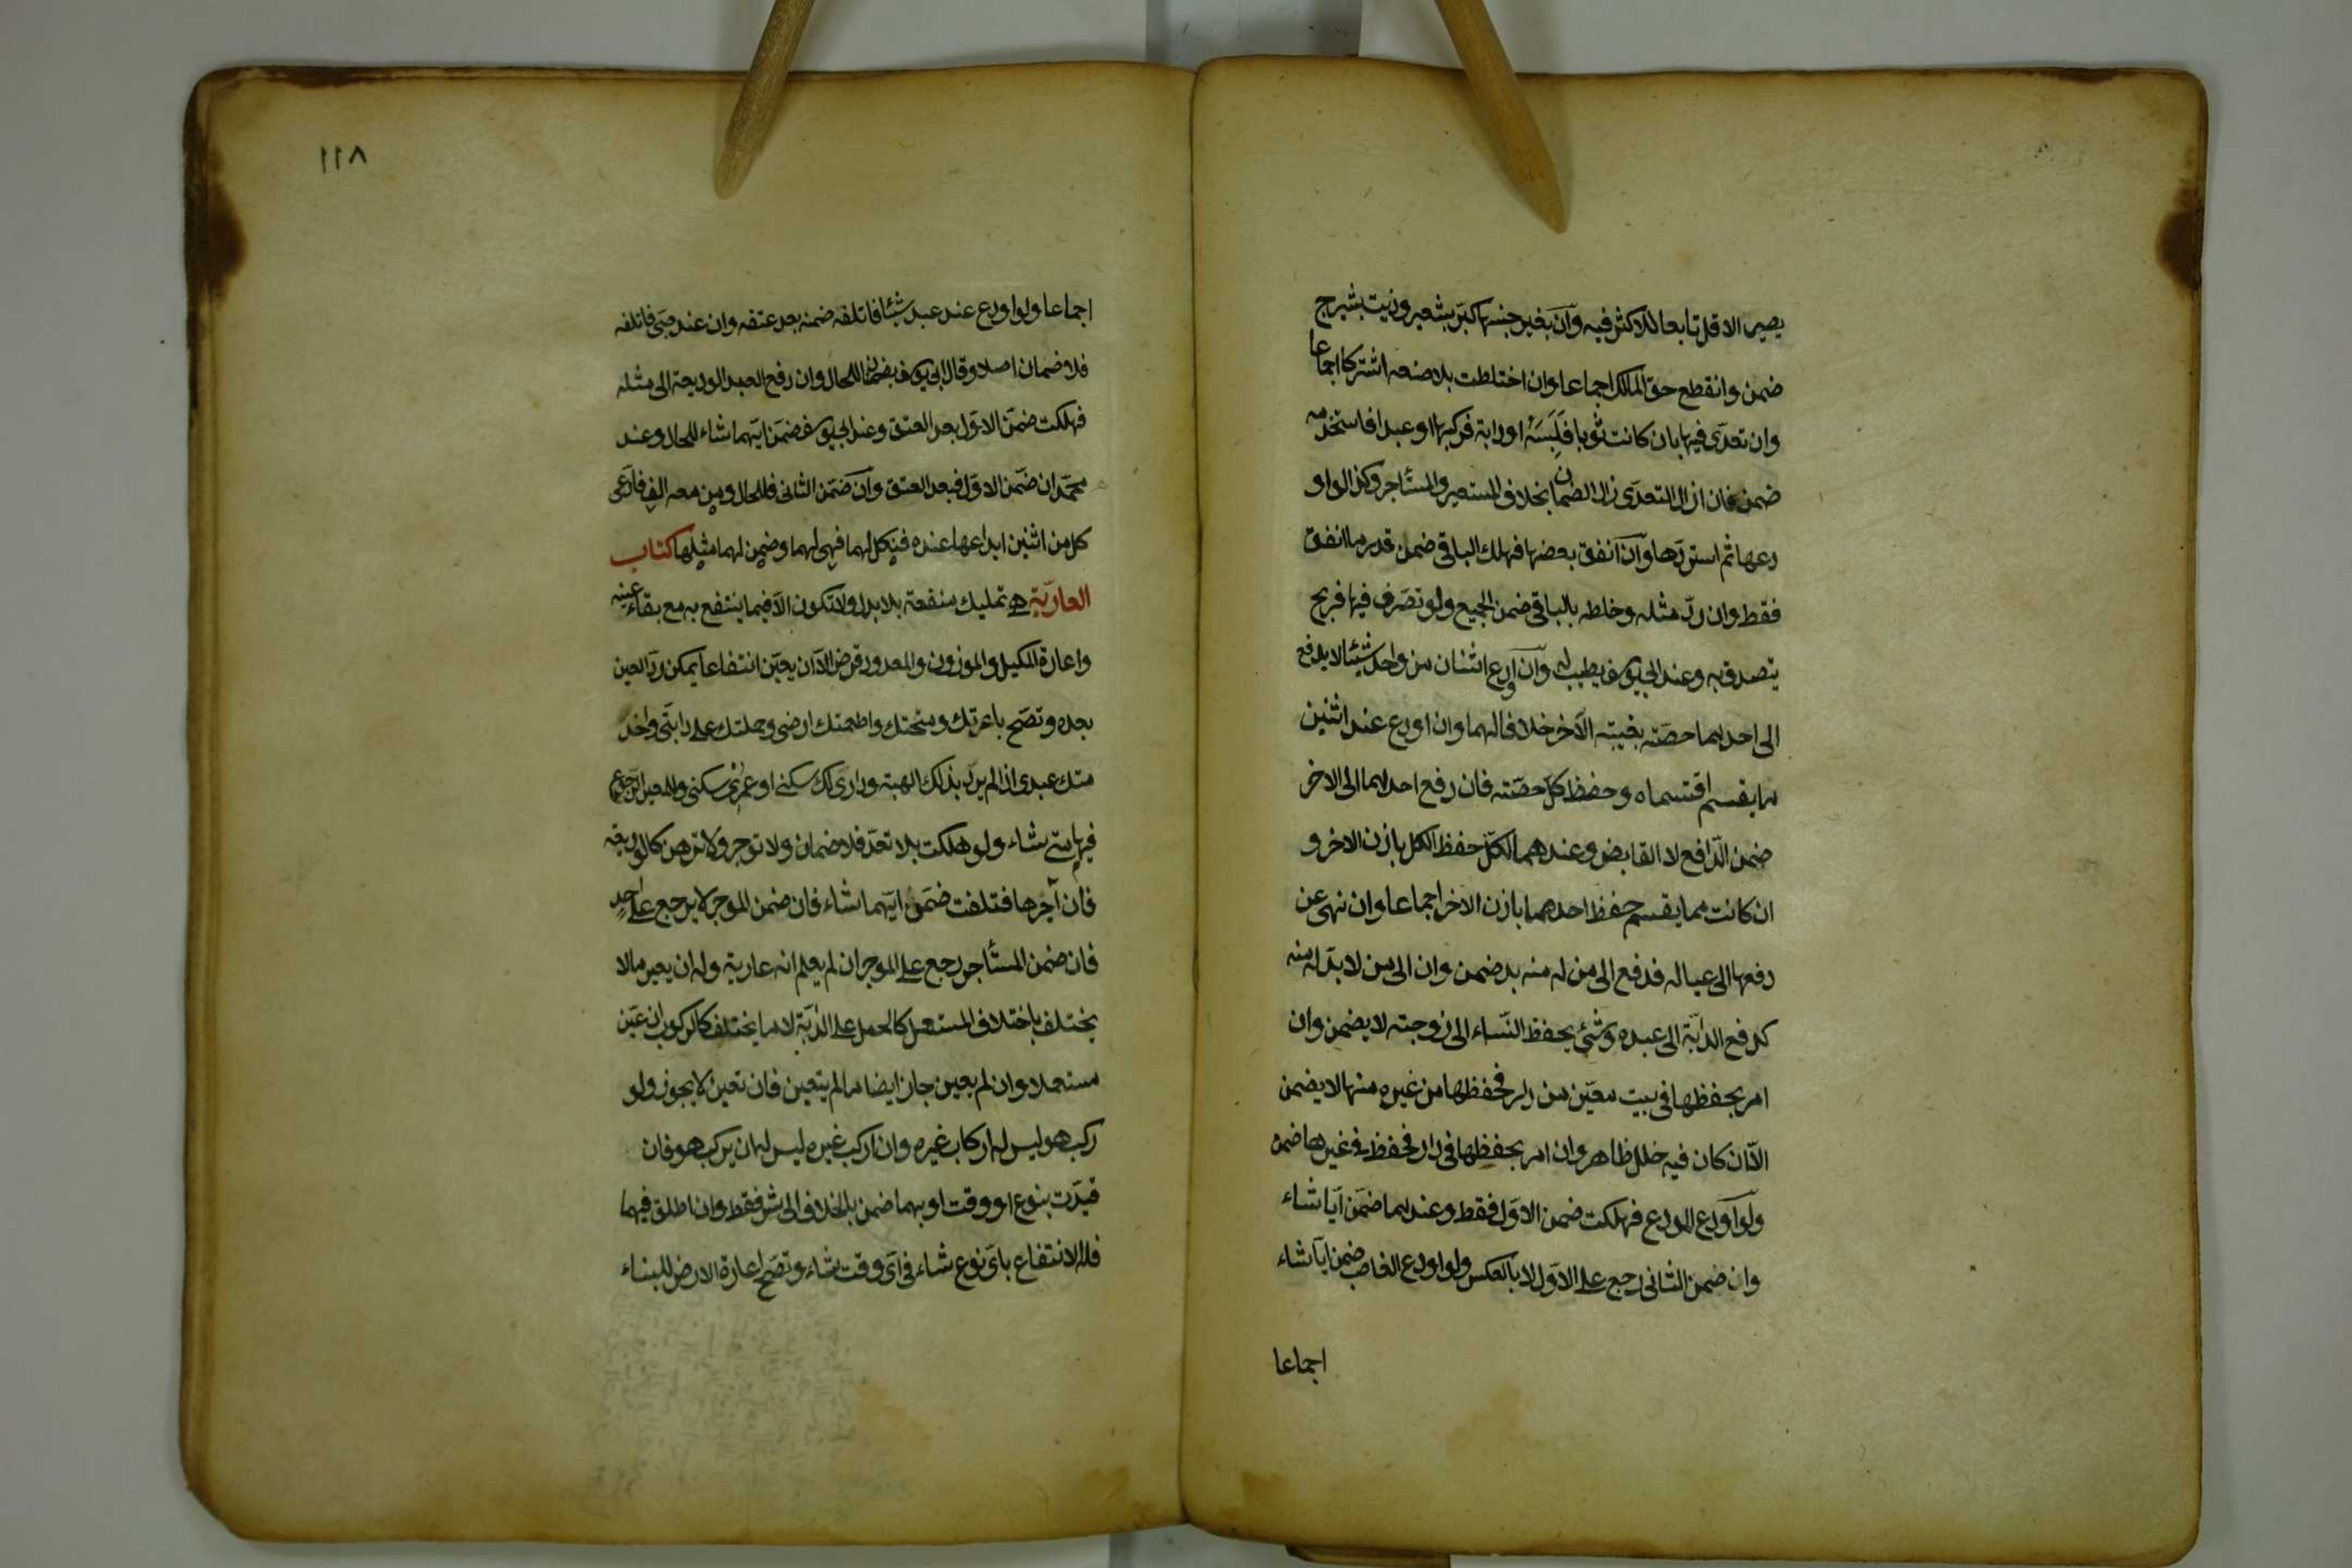 يصير الاقل تابعا للاكثر فيه وان بغير جنسها كبر بشعير وزيت بشيرج
ضمن وانقطع حق المالك اجماعا وان اختلطت بلا صنعه اشتركا اجماعا
وان تعدى فيها بان كانت ثوبا فلبسه او دابة فركبها او عبدا فاستخدمه
ضمن فان ازال التعدى زال الضمان بخلاف المستعير والمستأجر وكذا لو او
دعها ثم استردها وان انفق بعضها فهلك الباقى ضمن قدر ما انفق
فقط وان رد مثله وخلطه بالباقى ضمن الجميع ولو تصرف فيها فربح
يتصدق به وعند ابى يوسف يطيب له وان اودع اثنان من واحد شيئا لا يدفع
الى احدهما حصته بغيبة الآخر خلافا لهما وان اودع عند اثنين
ما يقسم اقتسماه وحفظ كل حصته فان دفع احدهما الى الاخر
ضمن الدافع لا القابض وعندهما لكل حفظ الكل باذن الاخر و
ان كانت مما يقسم حفظ احدهما باذن الاخر اجماعا وان نهى عن
دفعها الى عياله فدفع الى من له منه بد ضمن وان الى من لا بد له منه
كدفع الدابة الى عبده وشئ يحفظ النساء الى زوجته لا يضمن وان
امر بحفظها فى بيت معين من دار فحفظها من غيره منها لا يضمن
الا ان كان فيه خلل ظاهر وان امر بحفظها فى دار فحفظ فى غيرها ضمن
ولو اودع المودع فهلكت ضمن الاول فقط وعندهما ضمن ايا شاء
وان ضمن الثانى رجع على الاول لا بالعكس ولو اودع الغاصب ضمن ايا شاء
اجماعا
١١٨
اجماعا ولو اودع عند عبد شيئا فاتلفه ضمنه بعد عتقه وان عند صبى فاتلفه
فلا ضمان اصلا وقال ابى يوسف يضمنان للحال وان دفع العبد الوديعة الى مثله
فهلكت ضمن الاول بعد العتق وعند ابى يوسف ضمن ايهما شاء للحال وعند
محمد ان ضمن الاول فبعد العتق وان ضمن الثانى فللحال ومن معه الف فادعى
كل من اثنين ايداعها عنده فنكل لهما فهى لهما وضمن لهما مثلها كتاب
العارية هى تمليك منفعة بلا بدل ولا تكون الا فيما ينتفع به مع بقاء عينه
واعارة المكيل والموزون والمعدود قرض الا ان يعين انتفاعا يمكن رد العين
بعده وتصح باعرتك ومنحتك واطعمتك ارضى وحملتك على دابتى واخد
متك عبدى اذا لم يرد بذلك الهبة ودارى لك سكنى او عمرى سكنى وللمعير الرجوع
فيها متى شاء ولو هلكت بلا تعد فلا ضمان ولا توجر ولا ترهن كالوديعة
فان آجرها فتلفت ضمن ايهما شاء فان ضمن الموجر لا يرجع على احد
فان ضمن المستأجر رجع على الموجر ان لم يعلم انه عارية وله ان يعير ما لا
يختلف باختلاف المستعمل كالحمل على الدابة لا ما يختلف كالركوب ان عين
مستعملا وان لم يعين جاز ايضا ما لم يتعين فان تعين لا يجوز ولو
ركب هو ليس له اركاب غيره وان اركب غيره ليس له ان يركب هو فان
قيدت بنوع او وقت او بهما ضمن بالخلاف الى شر فقط وان اطلق فيهما
فله الانتفاع باى نوع شاء فى اى وقت شاء وتصح اعارة الارض للبناء